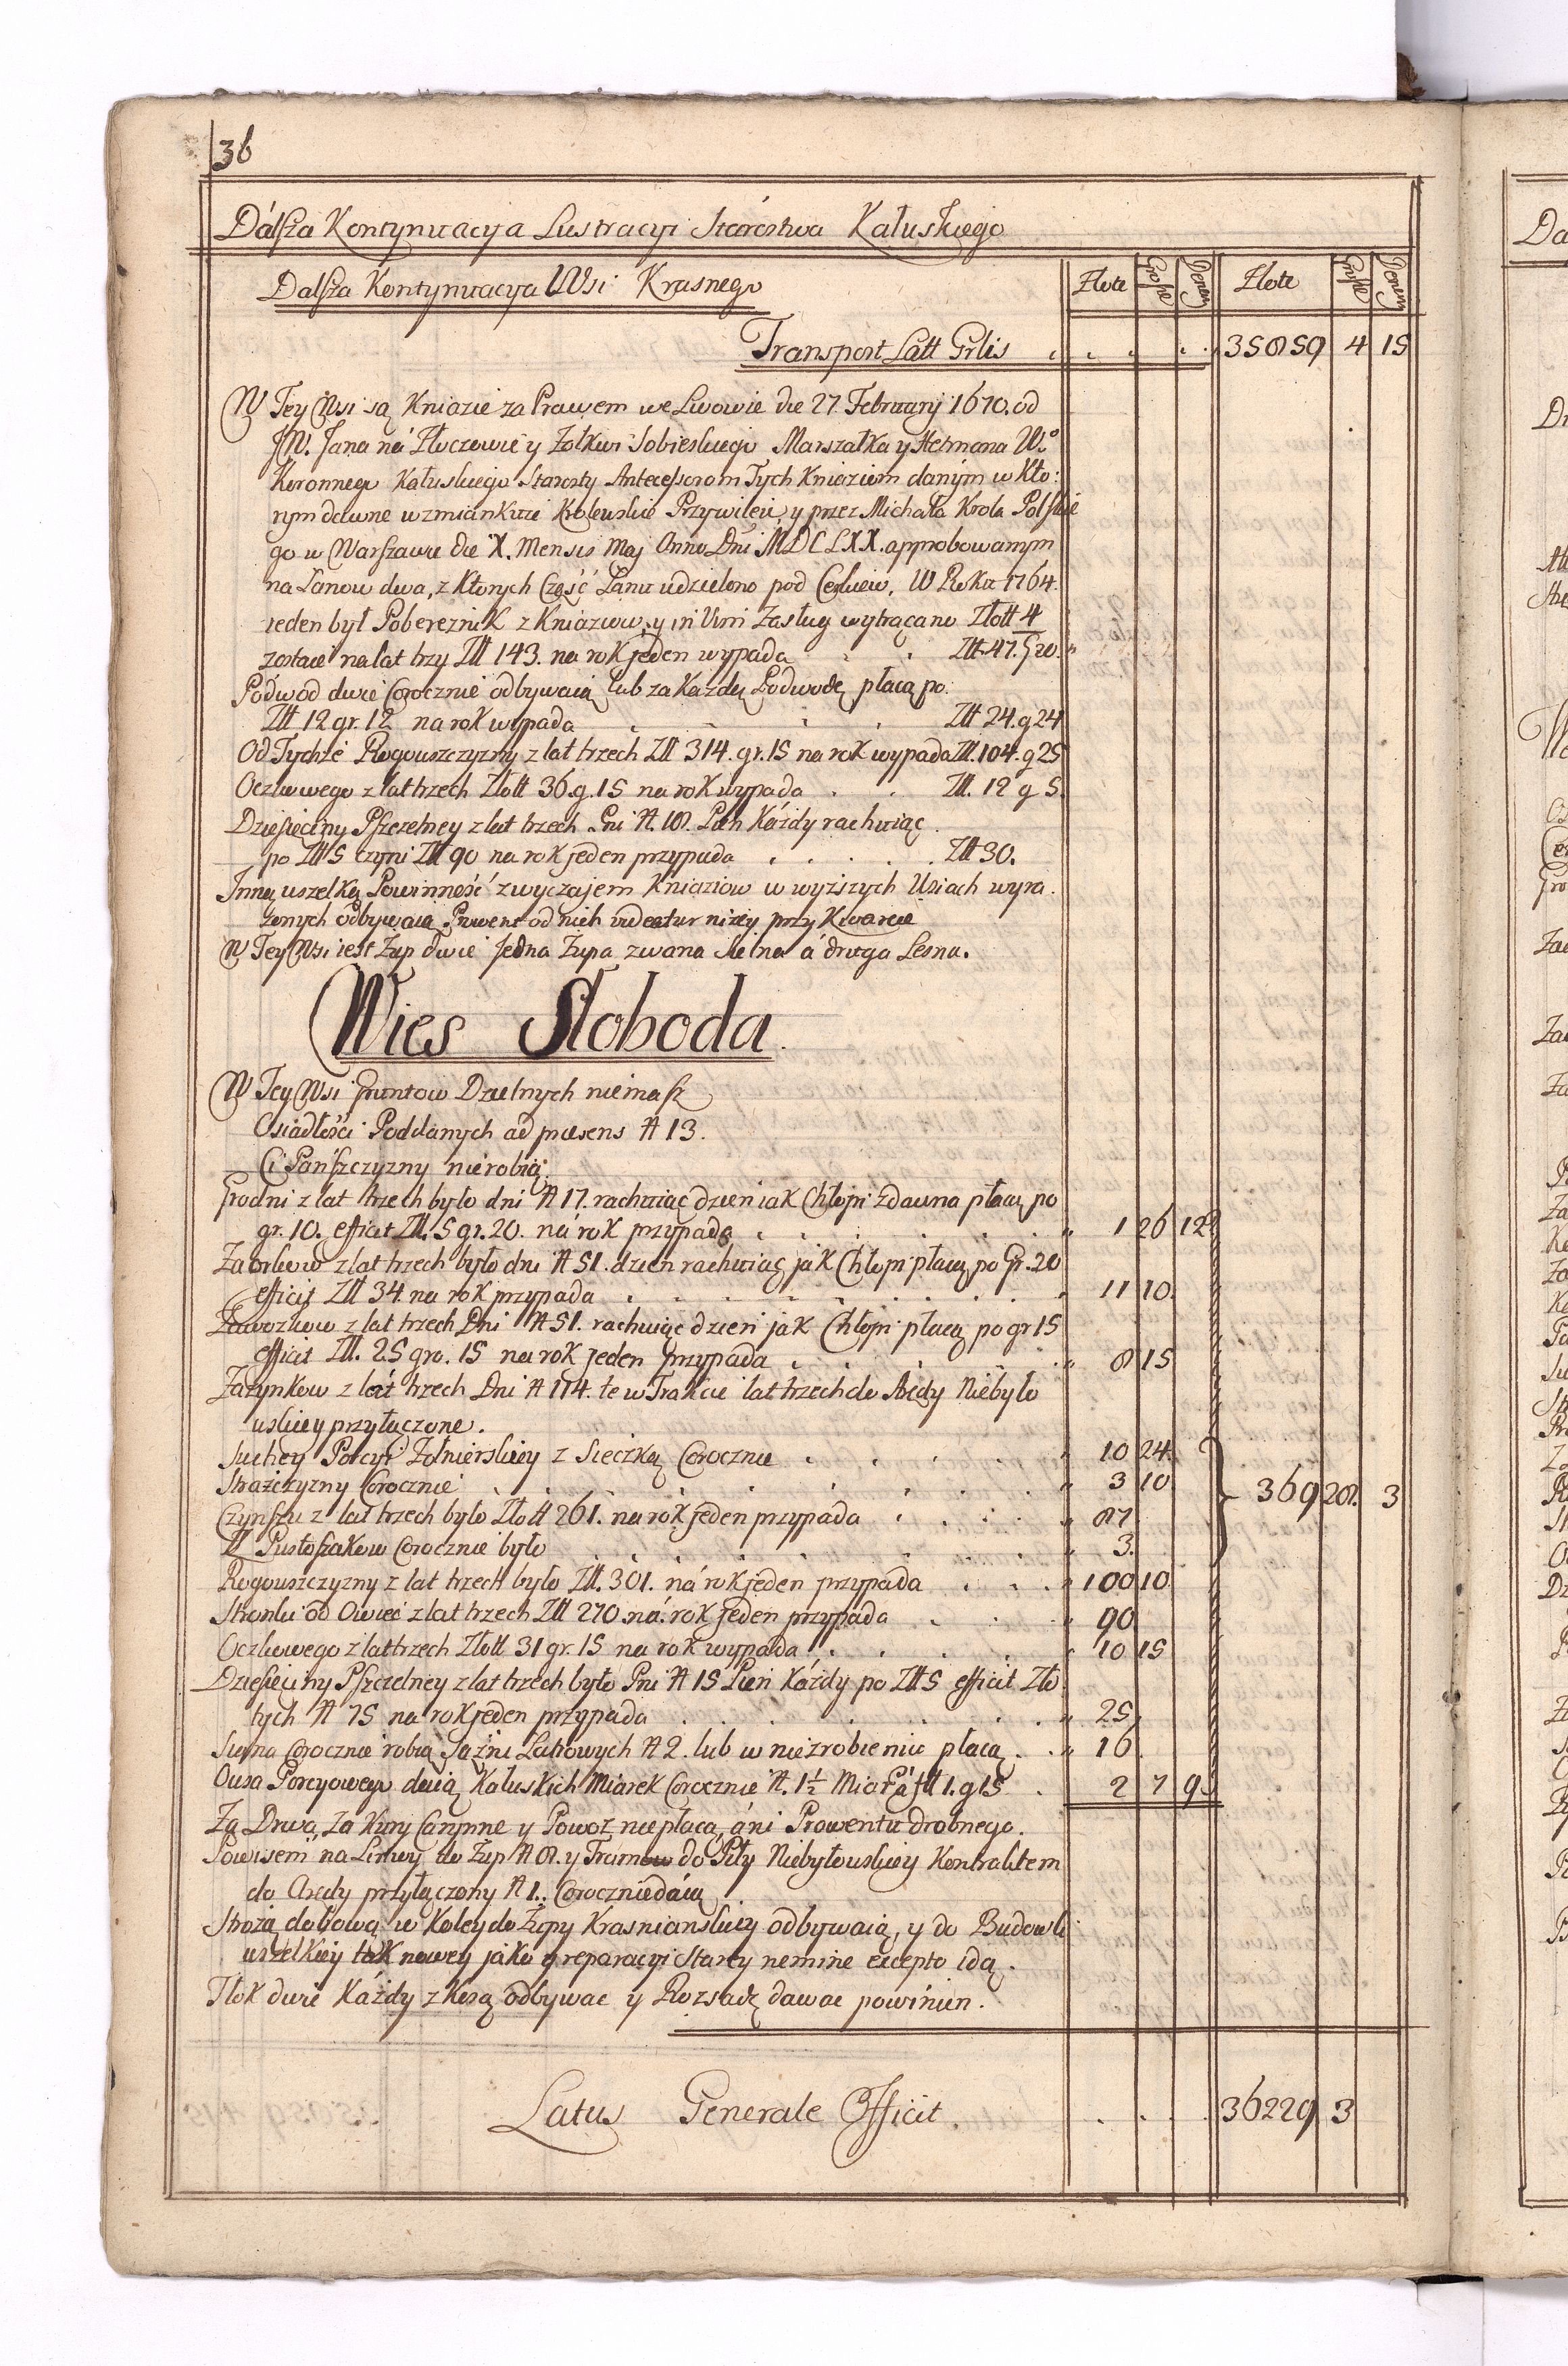 36
Dálsza Kontynuacya Lustracyi Starostwa Kałuskiego
Dalsza Kontynuacya Wsi Krasnego
Złote Grosze Denary Złote Grosze Denary
Transport Latt Grlis 35859 4 15
W Tey Wsi są Kniazie za Prawem we Lwowie die 27 Februarij 1670. od
JW. Jana ná Złoczowie y Zołkwi Sobieskiego Marszałka y Hetmana W.o
Koronnego Kałuskiego Starosty Antecessorom Tych Kniaziom danym w Kto:
rym dawne wzmiankuie Krolewskie Przywileia, y przez Michała Krola Polskie
go w Warszawie die X. Mensis Maj Anno Dni MDCLXX. approbowanym
na Lanow dwa, z Ktorych Część Lanu udzielono pod Cerkiew. W Roku 1764.
ieden był Pobereznik z Kniaziow, y in Vim Zasług wytrącano Złott 4
zostaie na lat trzy Złł 143. na rok jeden wypada Złł. 47. g 20.
Podwod dwie Corocznie odbywaią lub za Kazdą Podwodę płacą po
Złł 12 gr. 12 na rok wypada Złł 24. g 24
Od Tychże Rogowszczyzny z lat trzech Złł 314. gr. 15 na rok wypada Złł. 104. g 25
Oczkowego z lat trzech Złott 36. g. 15 na rok wypada Złł. 12 g 5.
Dziesięciny Pszczelney z lat trzech Pni N. 18. Pień Káżdy rachuiąc
po Złł 5 czyni Złł 90 na rok jeden przypada Złł 30.
Inną wszelką Powinność zwyczajem Kniaziow w wyższych Wsiach wyra
żonych odbywaią Prowent od nich videatur niżey przy Kwarcie
W Tey Wsi iest Żup dwie jedna Żupa zwana Sielna á druga Lesna.
Wies Słoboda.
W Tey Wsi Gruntow Dzielnych niemasz
Osiadłości Poddanych ad præsens N 13.
Ci Pańszczyzny nierobią.
Grodni z lat trzech było dni N 17. rachuiąc dzien iak Chłopi zdawna płacą po
gr. 10. efficit Złł. 5 gr. 20. na rok przypada 1 26 12
Zaorkow z lat trzech było dni N 51. dzien rachuiąc jak Chłopi płacą po Gr. 20
efficit Złł 34. na rok przypada 11 10
Zawozkow z lat trzech Dni N 51. rachuiąc dzień jak Chłopi płacą po gr 15
efficit Złł. 25 gro. 15 na rok jeden przypada 8 15
Zażynkow z lat trzech Dni N 114. te w Trakcie lat trzech do Aredy Niebyło
wskiey przyłączone.
Suchey Porcyi Żołnierskiey z Sieczką Corocznie 10 24
Strażczyzny Corocznie 3 10
Czynszu z lat trzech było Złott 261. na rok jeden przypada 87
Z Pustoszakow Corocznie było 3.
Rogowszczyzny z lat trzech było Złł. 301. ná rok jeden przypada 100 10
Stronki od Owiec z lat trzech Złł 270. ná rok jeden przypada 90
Oczkowego z lat trzech Złott 31 gr. 15 na rok wypada 10 15
Dziesięciny Pszczelney z lat trzech było Pni N 15 Pień Káżdy po Złł 5 efficit Zło
tych N 75 na rok jeden przypada 25
Siana Corocznie robią Sążni Łatrowych N 2. lub w niezrobieniu płacą 16
Owsa Porcyowego daią Kałuskich Miarek Corocznie N. 1½ Miarka á fł 1. g 15 2 7 9
369 28 3
Za Drwa, Za Kury Czynne y Powoz niepłacą, áni Prowentu drobnego.
Powisem na Linwy do Żup N 8. y Tramow do Piły Niebyłowskiey Kontraktem
do Aredy przyłączony N 1. Corocznie daią
Strożą dobową w Koley do Żupy Krasnianskiey odbywaią, y do Budowli
wszelkiey tak nowey jako y reparacyi Starey nemine excepto idą.
Tłok dwie Każdy z Kosą odbywac y Rozsadę dawac powinien.
Latus Generale Efficit 36229 3